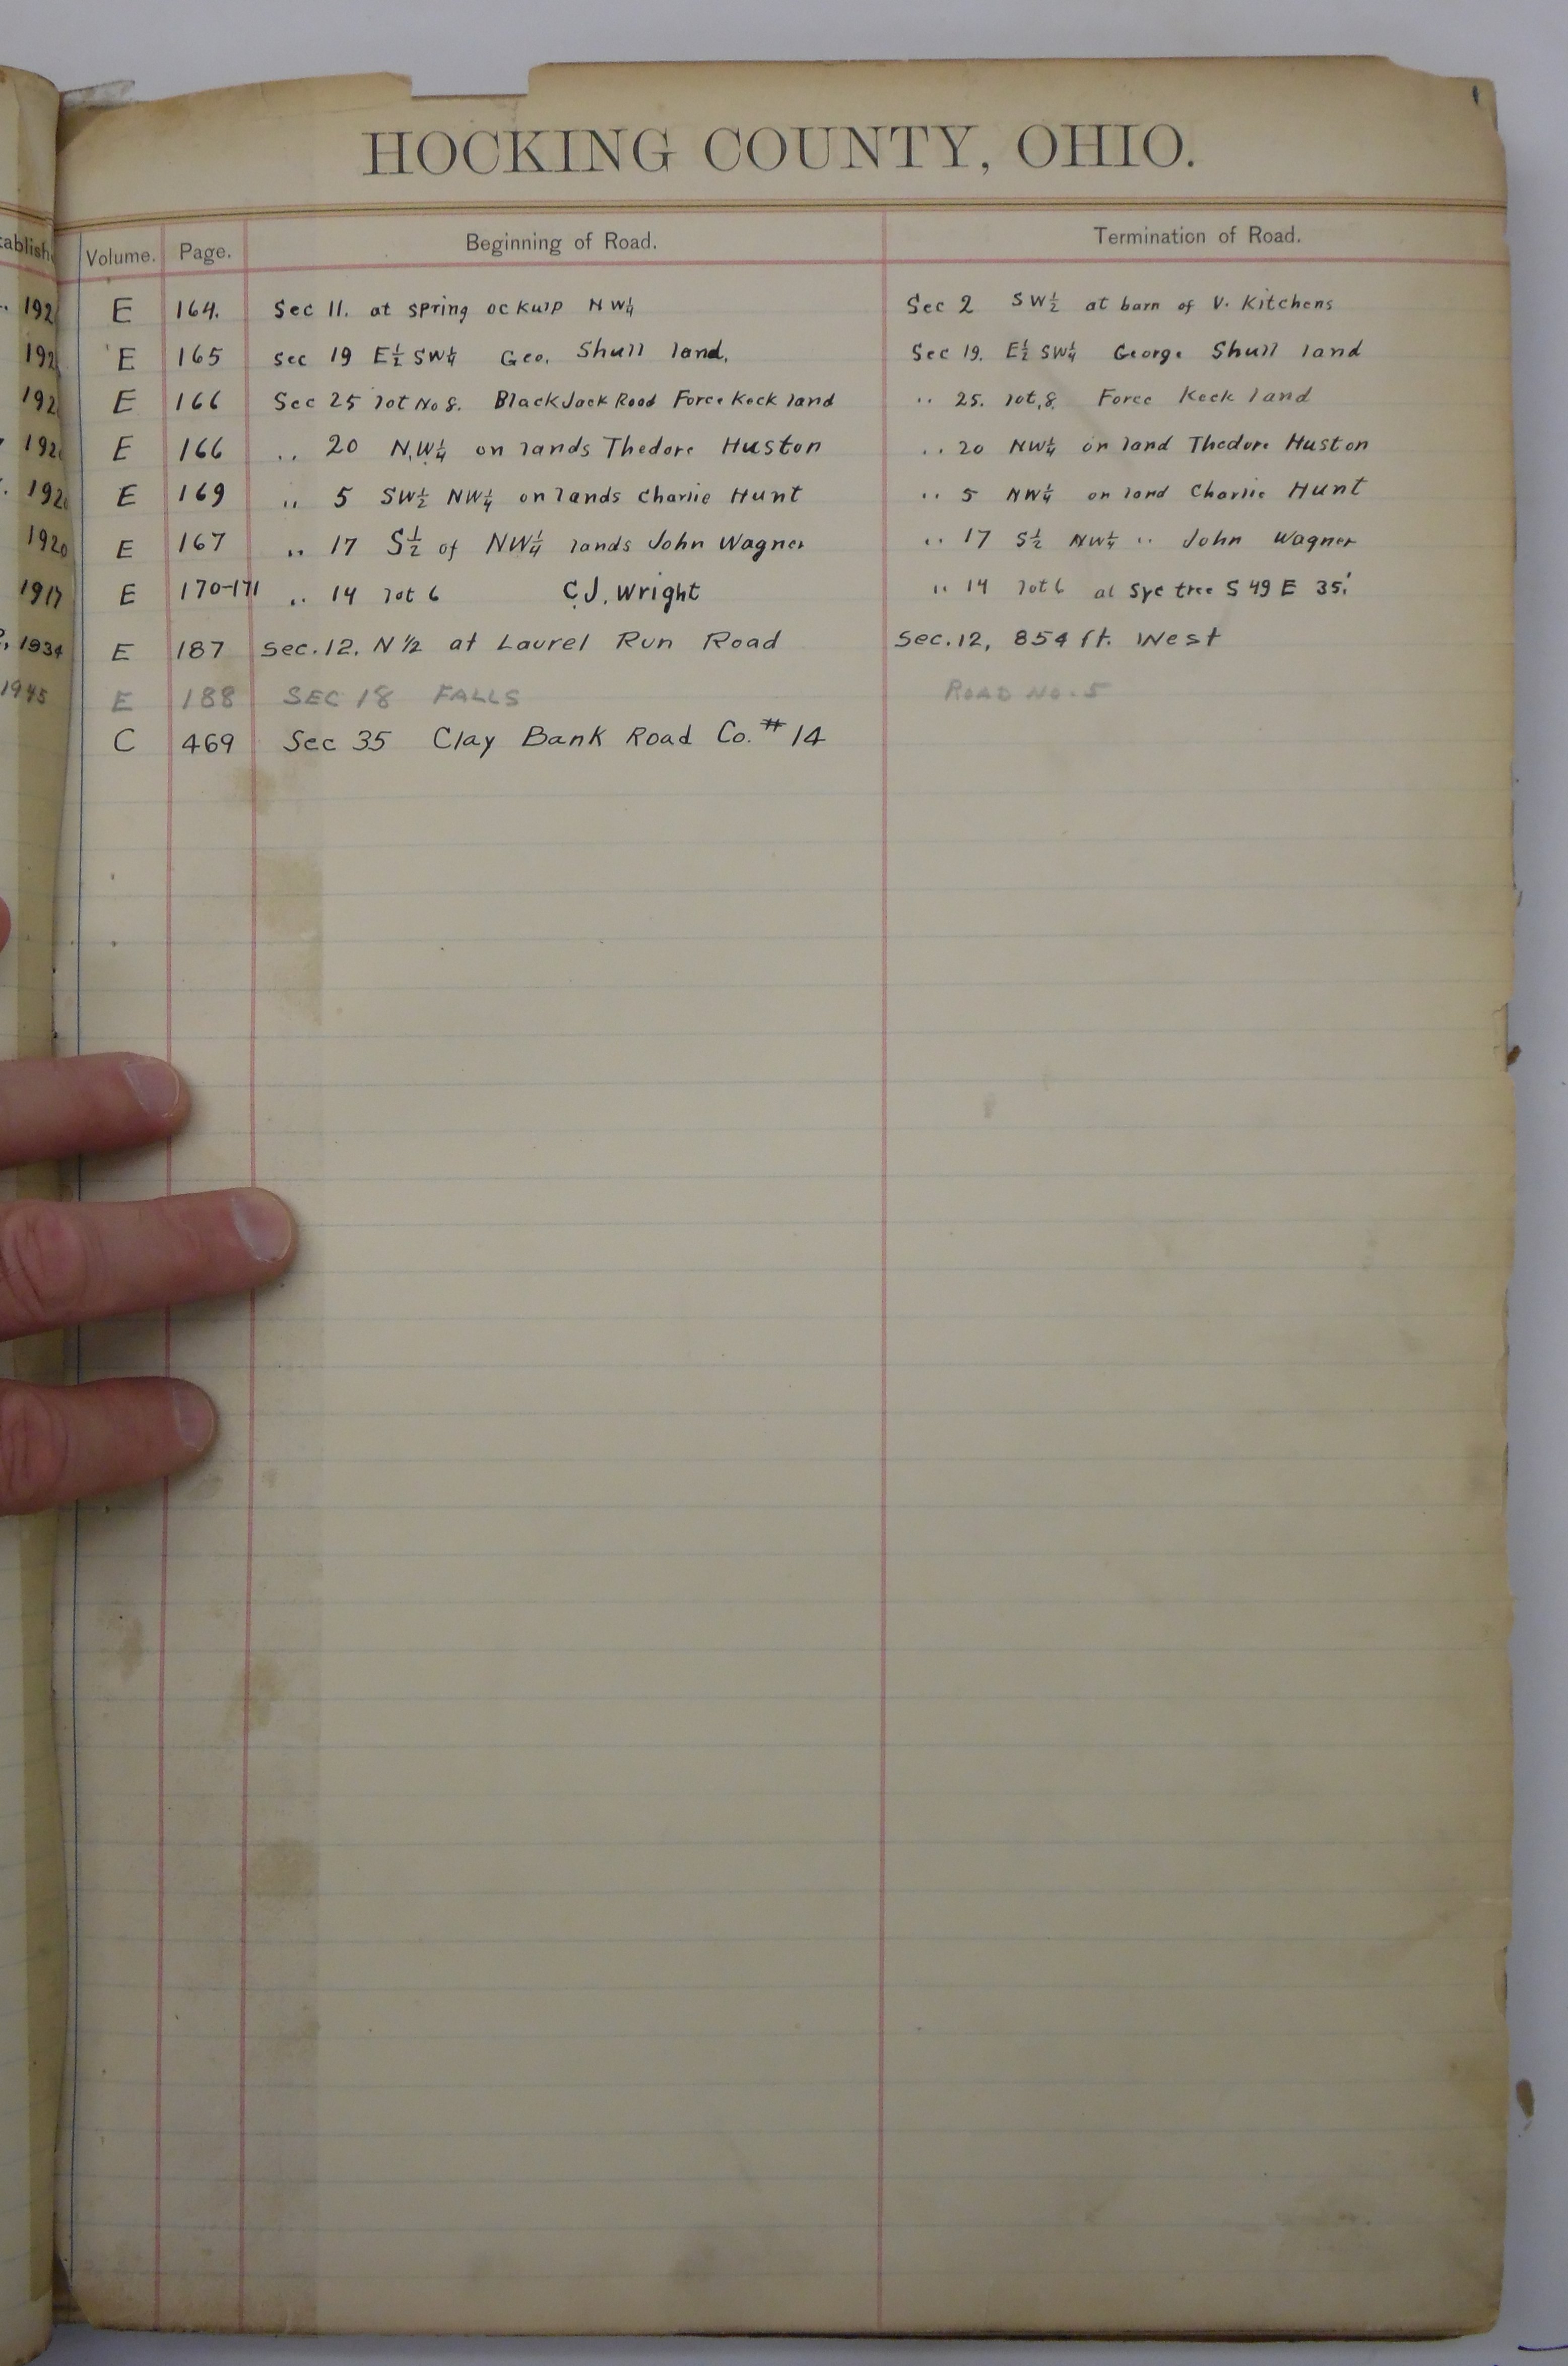 HOCKING COUNTY, OHIO.
Volume. Page. Beginning of Road. Termination of Road.
192 E 164. Sec 11. at spring NW¼ Sec 2 SW½ at barn of V. Kitchens
192 E 165 Sec 19 E½ SW¼ Geo. Shull land. Sec 19. E½ SW¼ George Shull land
192 E 166 Sec 25 lot No 8. Black Jack Road Force Keck land .. 25. lot, 8. Force Keck land
192 E 166 .. 20 N.W¼ on lands Thedore Huston .. 20 NW¼ on land Thedore Huston
192 E 169 .. 5 SW½ NW¼ on lands Charlie Hunt .. 5 NW¼ on land Charlie Hunt
1920 E 167 .. 17 S½ of NW¼ lands John Wagner .. 17 S½ NW¼ .. John Wagner
1917 E 170-171 .. 14 lot 6 C.J. Wright .. 14 lot 6 at Syc tree S 49 E 35.'
, 1934 E 187 Sec. 12. N ½ at Laurel Run Road Sec. 12, 854 ft. West
1945 E 188 SEC 18 FALLS ROAD NO. 5
C 469 Sec 35 Clay Bank Road Co. # 14